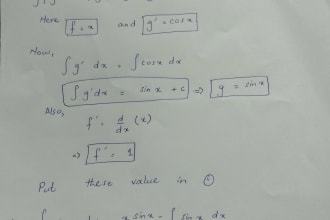 Here f = x and g' = cosx
Now,
∫ g' dx = ∫ cosx dx
∫ g'dx = sin x + c ⇒ g = sin x
Also,
f' = d/dx (x)
⇒ f' = 1
Put these value in ①
x sinx - ∫ sin x dx